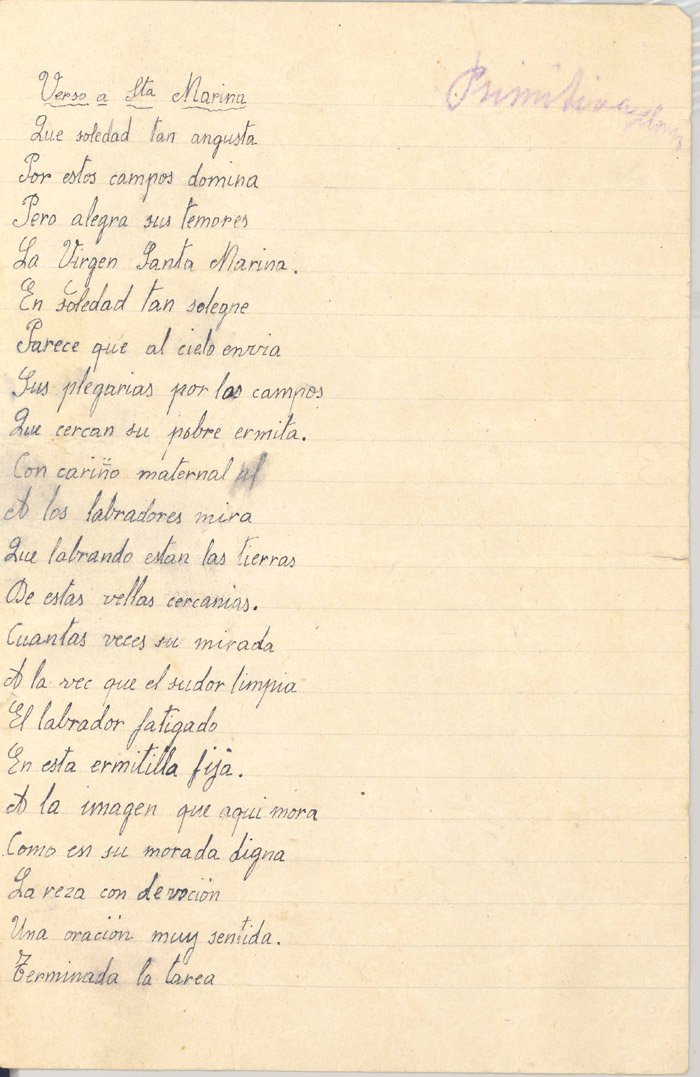 Primitiva
Verso a Sta Marina
Que soledad tan angusta
Por estos campos domina
Pero alegra sus temores
La Virgen Santa Marina.
En soledad tan solegne
Parece que al cielo envia
Sus plegarias por los campos
Que cercan su pobre ermita.
Con cariño maternal al
A los labradores mira
Que labrando estan las tierras
De estas vellas cercanias.
Cuantas veces su mirada
A la vec que el sudor limpia
El labrador fatigado
En esta ermitilla fija.
A la imagen que aqui mora
Como en su morada digna
La reza con devoción
Una oración muy sentida.
Terminada la tarea